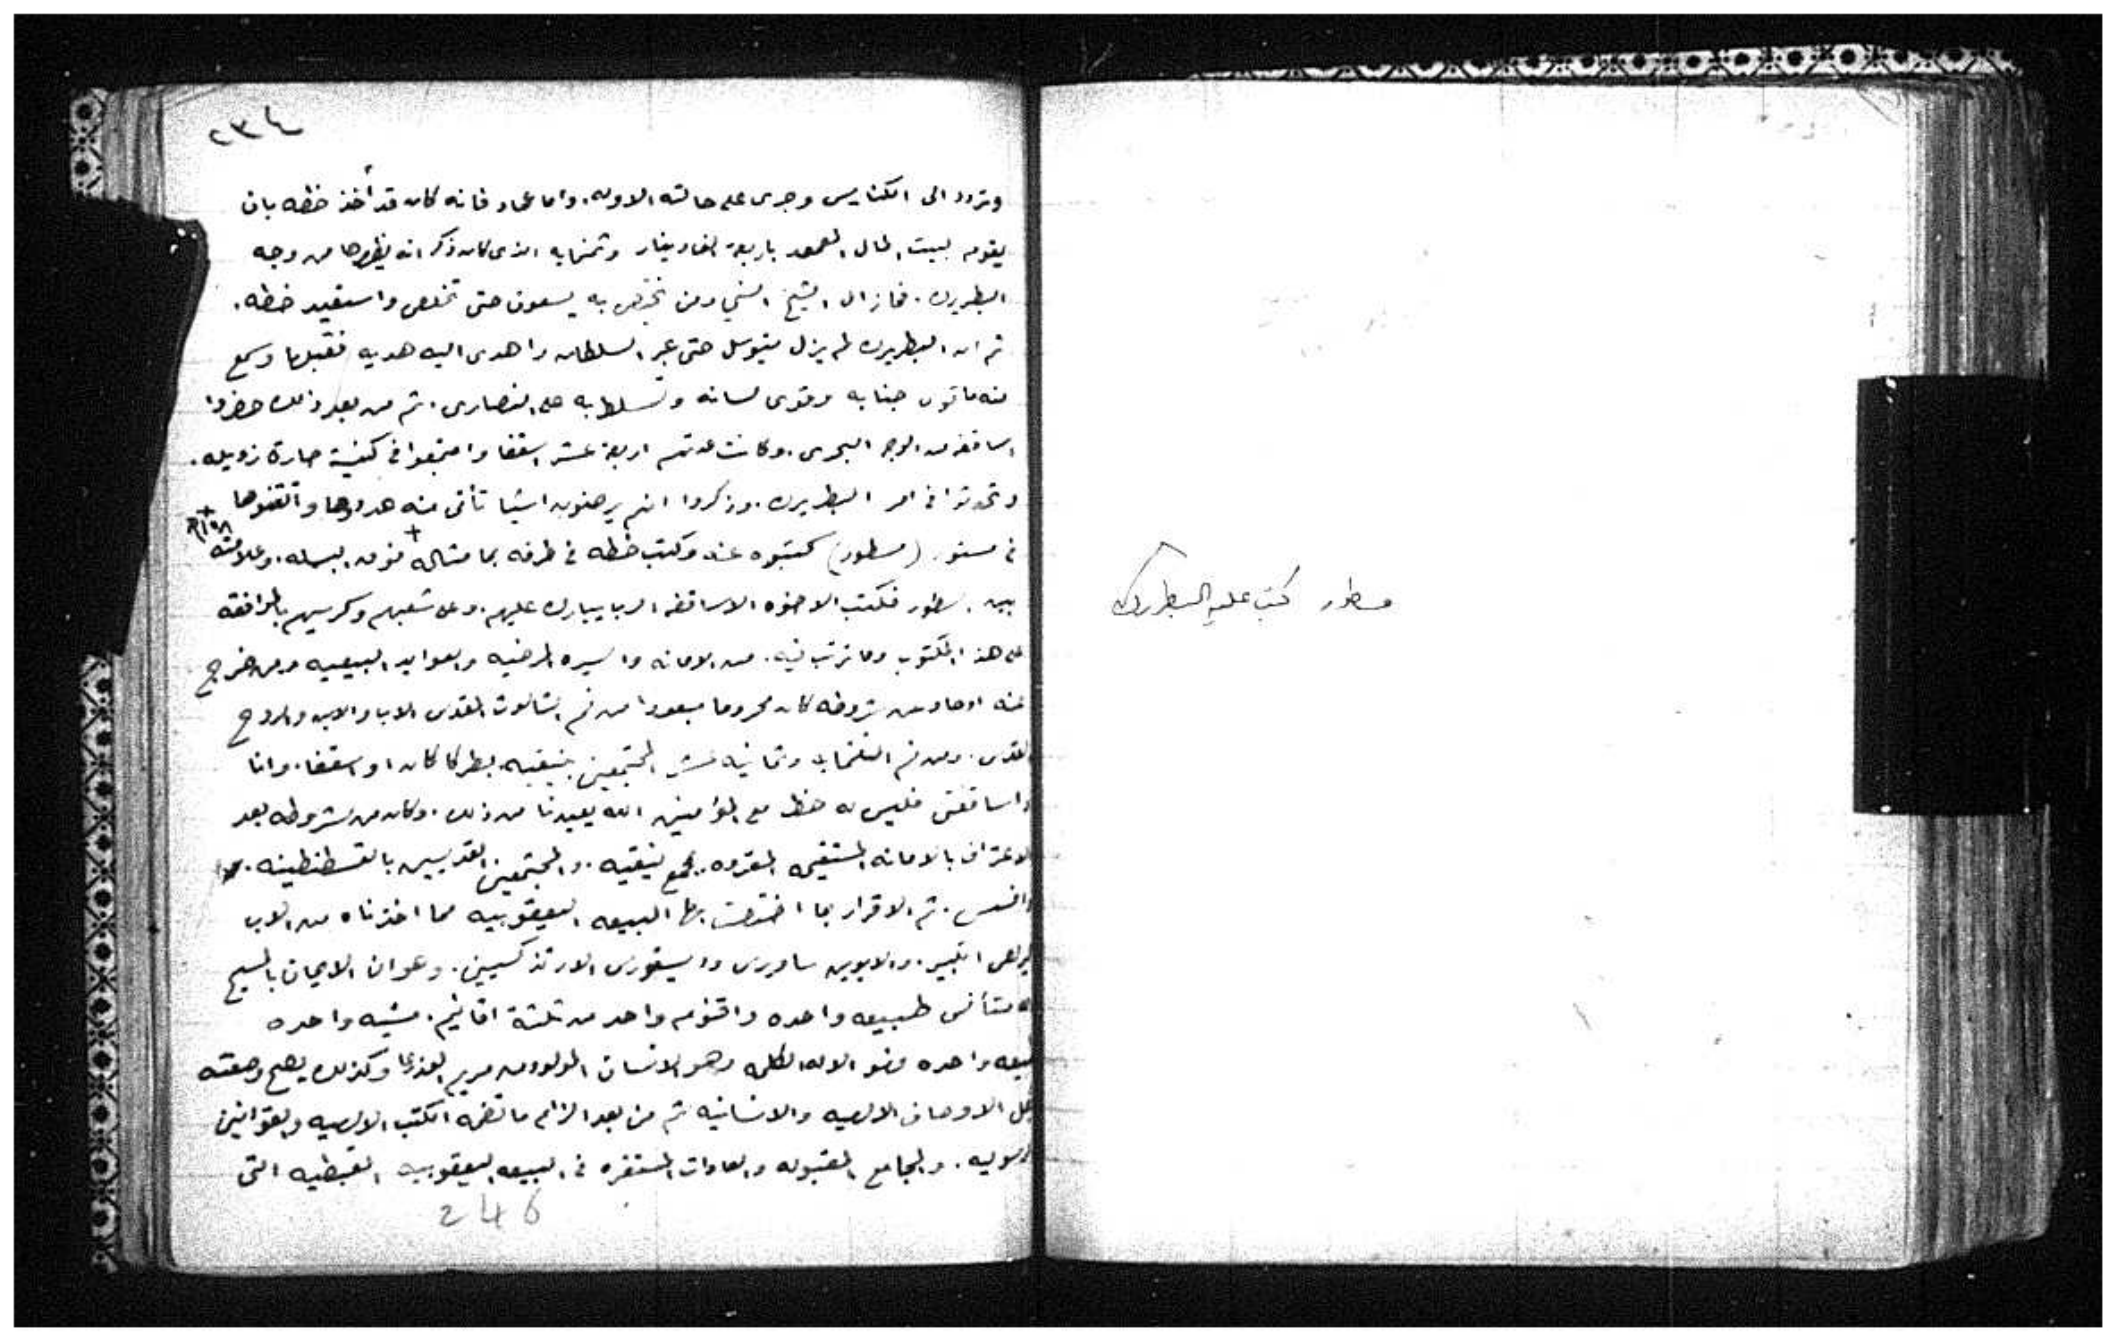 ٢٣٤
وتردد الى الكنايس وجرى على حالته الاوله. واما عماد فانه كان قد أخذ خطه بان
يقوم لبيت المال المعمور باربعة الف دينار وثمنمايه الذى كان ذكر انه يظهرها من وجه
البطريرك. فمازال الشيخ السنى ومن يختص به يسعون حتى تخلص واستعيد خطه.
ثم ان البطريرك لم يزل يتوسل حتى عبر السلطان واهدى اليه هديه فقبلها وسمع
منه ماقوى جنابه وقوى لسانه وتسلط به على النصارى. ثم من بعد ذلك حضروا
اساقفة من الوجه البحرى. وكانت عدتهم اربعة عشر اسقفا واجتمعوا فى كنيسة حارة زويله.
وتحدثوا فى امر البطريرك. وذكروا انهم يرضون اشيا تأتى منه حددوها وأتقنوها
فى مستور (مسطور) كتبوه عنه وكتب خطه فى طرفه بما مثاله فوق البسمله. وعلامته
بين السطور فكتب الاخوه الاساقفه الرب يبارك عليهم. وعلى شعبهم وكرسيهم بالموافقه
على هذا المكتوب وما ترتب فيه. من الامانه والسيره المرضيه والعوايد البيعيه ومن خرج
عنه اوحاد عن شروطه كان محروما مبعودا من فم الثالوث المقدس الاب والابن والروح
القدس. ومن فم الثلثمايه وثمانيه عشر المجتمعين بنيقيه بطركا كان او اسقفا. وانا
واساقفتى فليس له حظ مع المؤمنين الله يعيدنا من ذلك. وكان من شروطه بعد
الاعتراف بالامانه المستقيمه المقرره بمجمع نيقيه. والمجتمعين القديسين بالقسطنطينيه.
وافسس. ثم الاقرار بما اختصت بها البيعه اليعقوبيه مما اخذناه من الاب
كيرلص الكبير. والابوين ساويرس وديسقورس الارتدكسيين. وعوان الايمان بالمسيح
اله متأنس طبيعه واحده واقنوم واحد من ثلثة اقانيم. مشيه واحده
طبيعه واحده وهو الاله الكلمه وهو الانسان المولود من مريم العذرا وكذلك يصح وصفته
بكل الاوصاف الالهيه والانسانيه ثم من بعد الزام ماتضمنه الكتب الالهيه والقوانين
الرسوليه. والمجامع المقبوله والعادات المستقره فى البيعه اليعقوبيه القبطيه التى
246
مسطور كتب عليه البطريرك